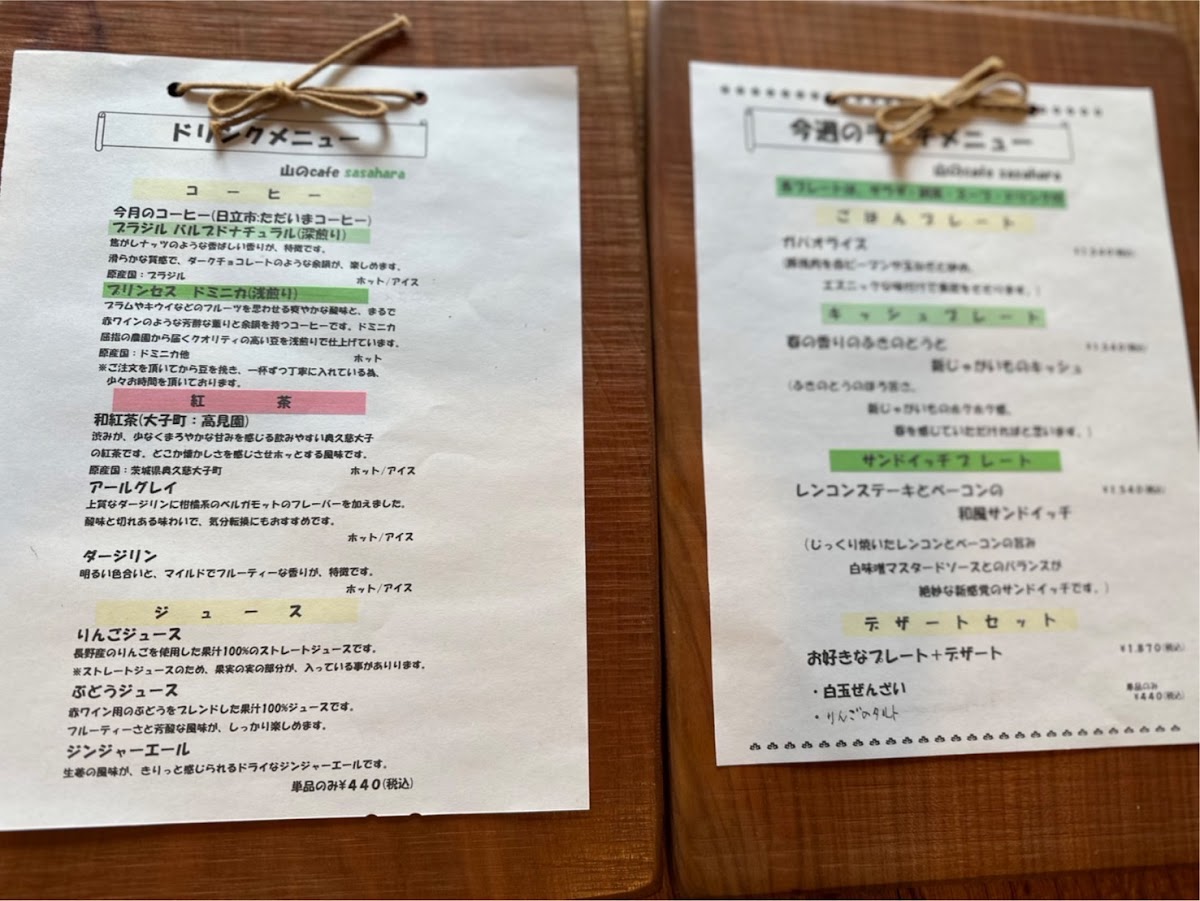 ドリンクメニュー
山のcafe sasahara
コーヒー
今月のコーヒー(日立市:ただいまコーヒー)
ブラジル パルプドナチュラル(深煎り)
焦がしナッツのような香ばしい香りが、特徴です。
滑らかな質感で、ダークチョコレートのような余韻が、楽しめます。
原産国：ブラジル
ホット/アイス
プリンセス ドミニカ(浅煎り)
プラムやキウイなどのフルーツを思わせる爽やかな酸味と、まるで
赤ワインのような芳醇な薫りと余韻を持つコーヒーです。ドミニカ
屈指の農園から届くクオリティの高い豆を浅煎りで仕上げています。
原産国：ドミニカ他
ホット
※ご注文を頂いてから豆を挽き、一杯ずつ丁寧に入れている為、
少々お時間を頂いております。
紅茶
和紅茶(大子町：高見園)
渋みが、少なくまろやかな甘みを感じる飲みやすい奥久慈大子
の紅茶です。どこか懐かしさを感じさせホッとする風味です。
原産国：茨城県奥久慈大子町
ホット/アイス
アールグレイ
上質なダージリンに柑橘系のベルガモットのフレーバーを加えました。
酸味と切れある味わいで、気分転換にもおすすめです。
ホット/アイス
ダージリン
明るい色合いと、マイルドでフルーティーな香りが、特徴です。
ホット/アイス
ジュース
りんごジュース
長野産のりんごを使用した果汁100%のストレートジュースです。
※ストレートジュースのため、果実の実の部分が、入っている事がありります。
ぶどうジュース
赤ワイン用のぶどうをブレンドした果汁100%ジュースです。
フルーティーさと芳醇な風味が、しっかり楽しめます。
ジンジャーエール
生姜の風味が、きりっと感じられるドライなジンジャーエールです。
単品のみ¥440(税込)
今週のランチメニュー
山のcafe sasahara
各プレートは、サラダ・スープ・ドリンク付
ごはんプレート
ガパオライス
エスニックな味付けで食欲をそそります。)
キッシュプレート
春の香りのふきのとうと
新じゃがいものキッシュ
(ふきのとうのほろ苦さ、
新じゃがいものホクホク感、
春を感じていただければと思います。)
サンドイッチプレート
レンコンステーキとベーコンの
¥1,540(税込)
和風サンドイッチ
(じっくり焼いたレンコンとベーコンの旨み
白味噌マスタードソースとのバランスが
絶妙な新感覚のサンドイッチです。)
デザートセット
お好きなプレート＋デザート
¥1,870(税込)
・白玉ぜんざい
単品のみ
¥440(税込)
・りんごのタルト